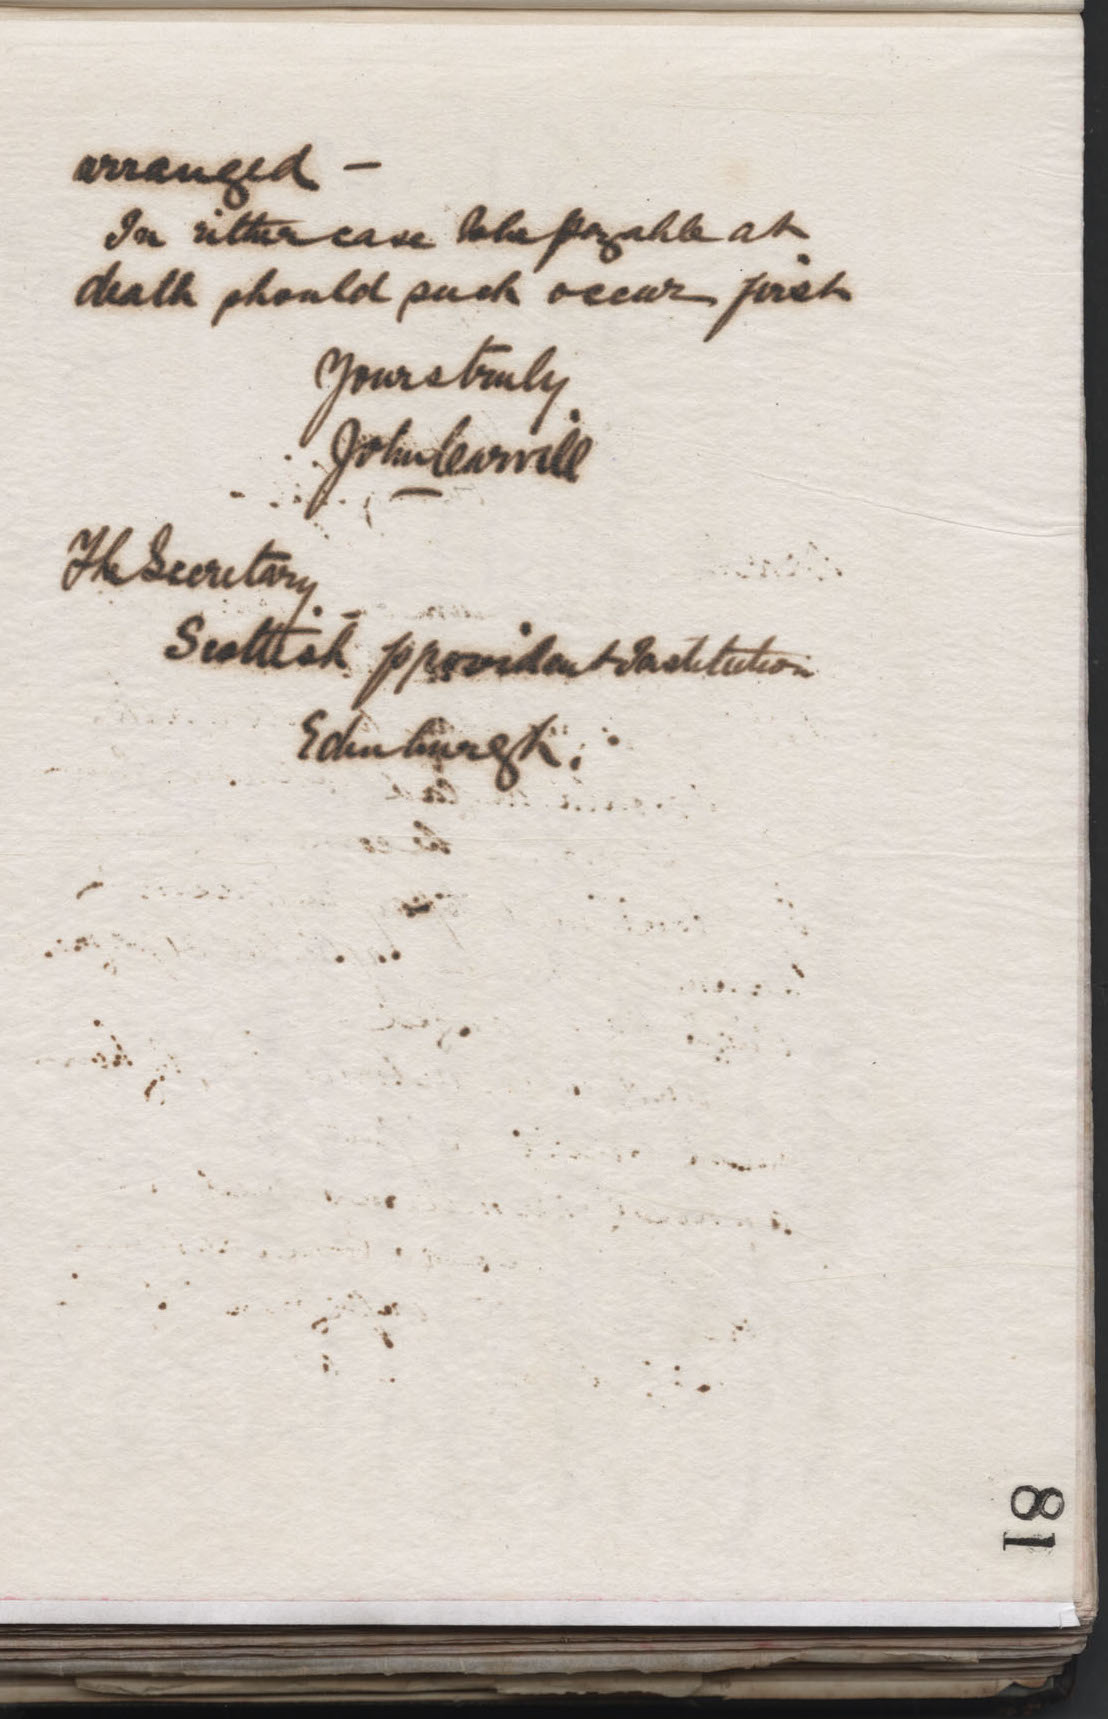 arranged —
In either case to be payable at
death should such occur first
Yours truly
John Carvill
The Secretary
Scottish provident Institution
Edinburgh.
18